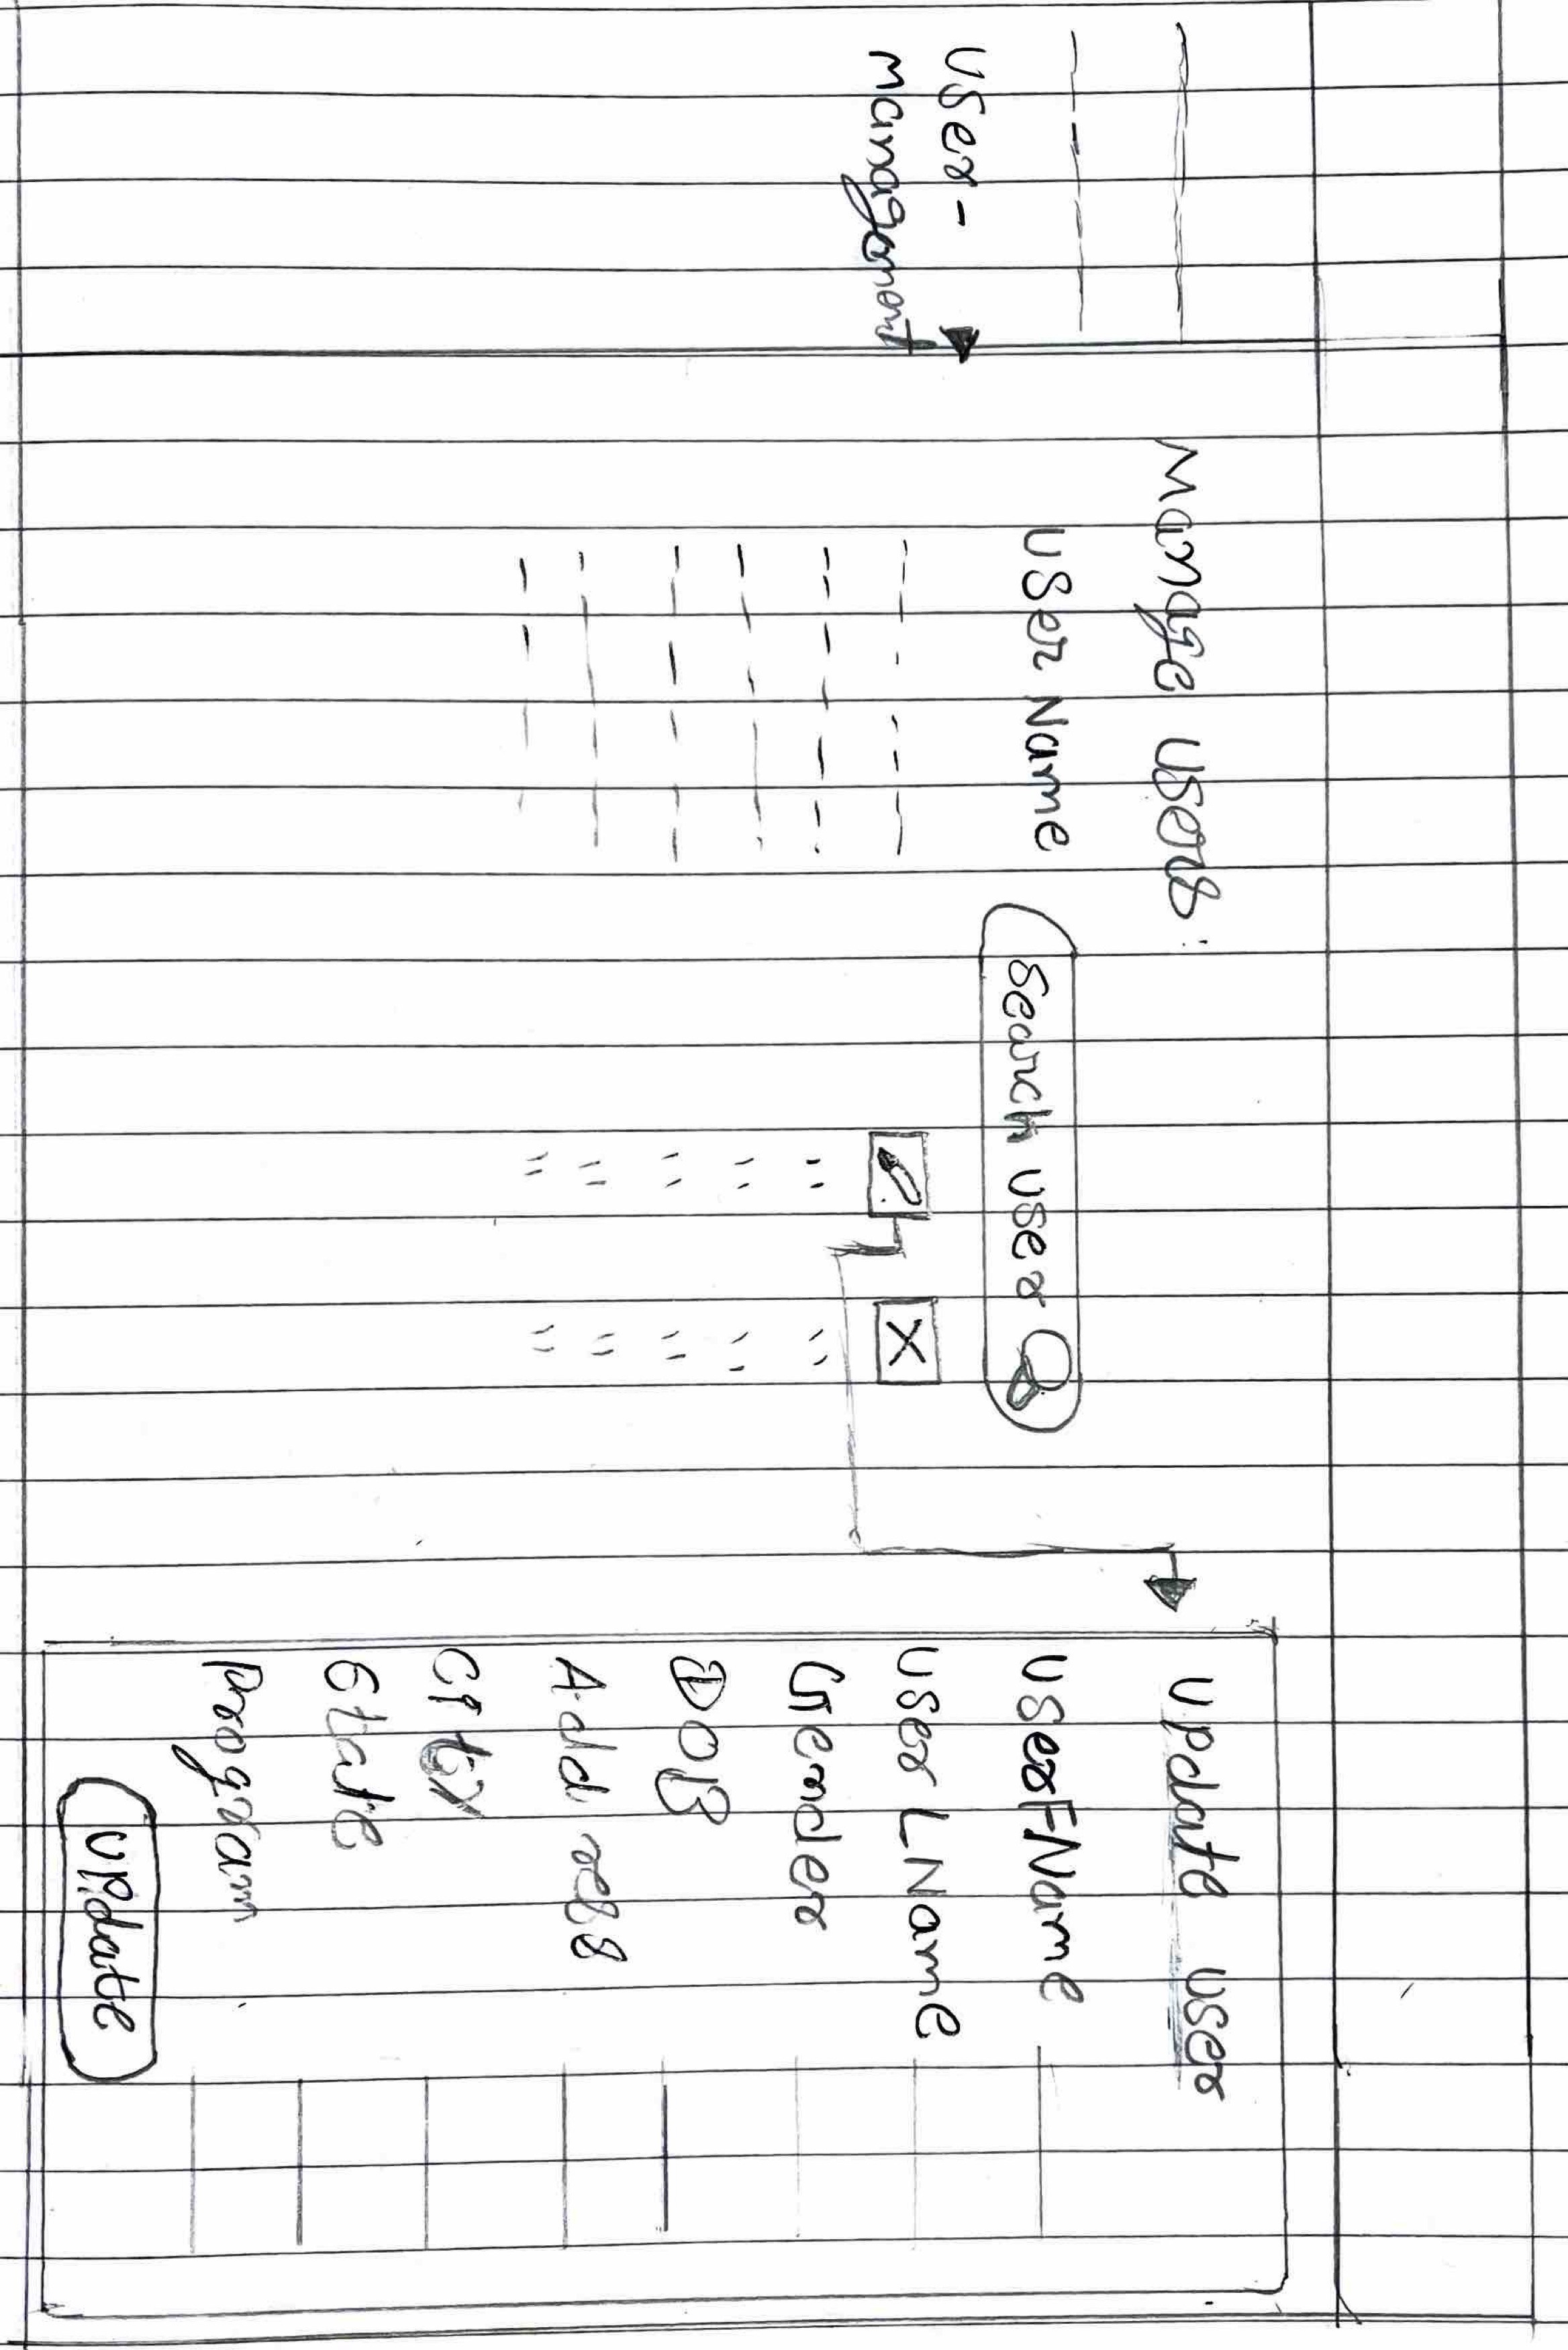 User-
management
Manage Users:
User Name
Search user
Update User
UserFName
User LName
Gender
DOB
Address
City
State
Program
Update